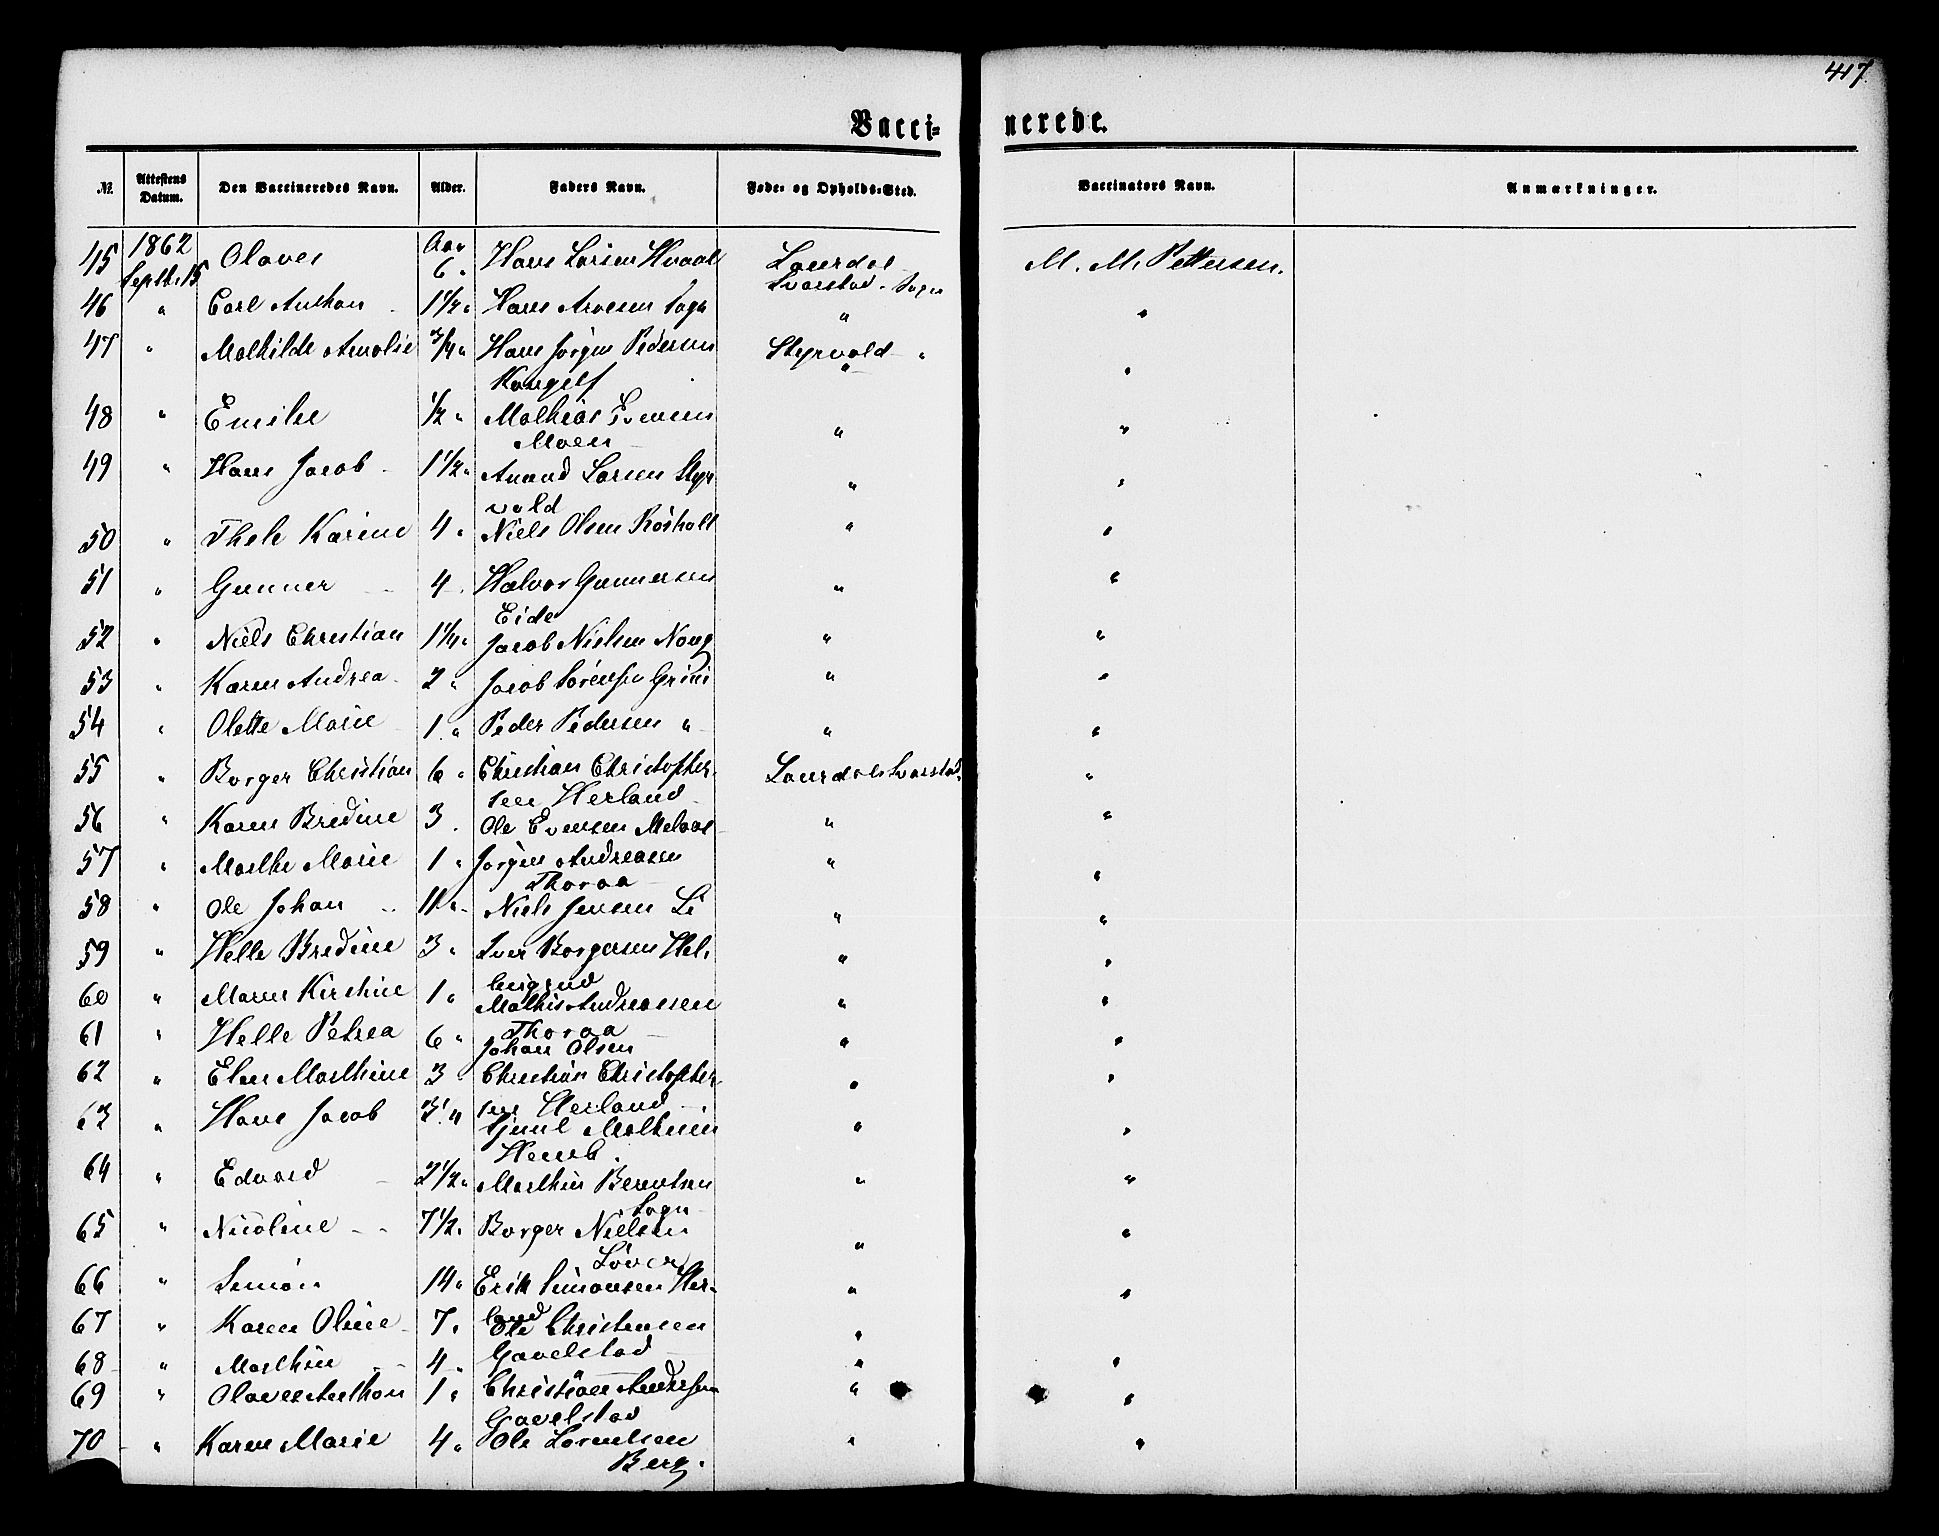 417.
Vacci= nerede.
№ Attestens Datum. Den Vaccineredes Navn. Alder. Faders Navn. Føde- og Opholds-Sted. Vaccinators Navn. Anmærkninger.
1862 Aar
45 Septbr 15 Olaves 6 " Hans Larsen Hvaal Laurdal M. M. Pettersen.
Svarstad - Sogn
46 " Carl Anthon 1 1/2 " Hans Sogn " "
47 " Mathilde Amalie 3/4 " Hans Jörgen Pedersen Styrvold " "
Kongelf "
48 " Emilie 1/2 " Mathias Evensen " "
Moen
49 " Hans Jacob 1 1/2 " Amund Larsen Styr " "
vold
50 " Thale Karine 4 " Niels Olsen Rösholt " "
51 " Gunner 4 Halvor Gunnersen " "
Eide
52 " Niels Christian 1 1/4 " Jacob Nielsen Houg " "
53 " Karen Andrea 2 " Jacob Sörensen Grini " "
54 " Olette Marie 1 " Peder Pedersen " " "
55 " Borger Christian 6 " Christian Christopher- Laurdal Svarstad "
sen Herland
56 " Karen Bredine 3 Ole Evensen " "
57 " Marthe Marie 1 " Jörgen Andreasen " "
Thoraa
58 " Ole Johan 11 " Niels Jensen Li " "
59 " Helle Bredine 3 " Iver Borgersen Hel- " "
60 " Maren Kirstine 1 " Mathis Andreassen " "
Thoraa
61 " Helle Petrea 6 " Johan Olsen " "
62 " Elen Marthine 3 Christian Christopher- " "
sen Herland
63 " Hans Jacob 3 " Mathisen " "
64 " Edvard 2 1/2 " Marthin Berntsen " "
Sogn
65 " Nicoline 7 1/2 " Borger Nielsen " "
Löver
66 " Simon 14 " Erik Simonsen Her- " "
land
67 " Karen Oline 7 " Ole Christensen " "
Gavelstad
68 " Marthin 4 " " "
69 " Olaves Anthon 1 " Christian Andersen " "
Gavelstad
70 " Karen Marie 4 " Ole Larentsen " "
Berg.